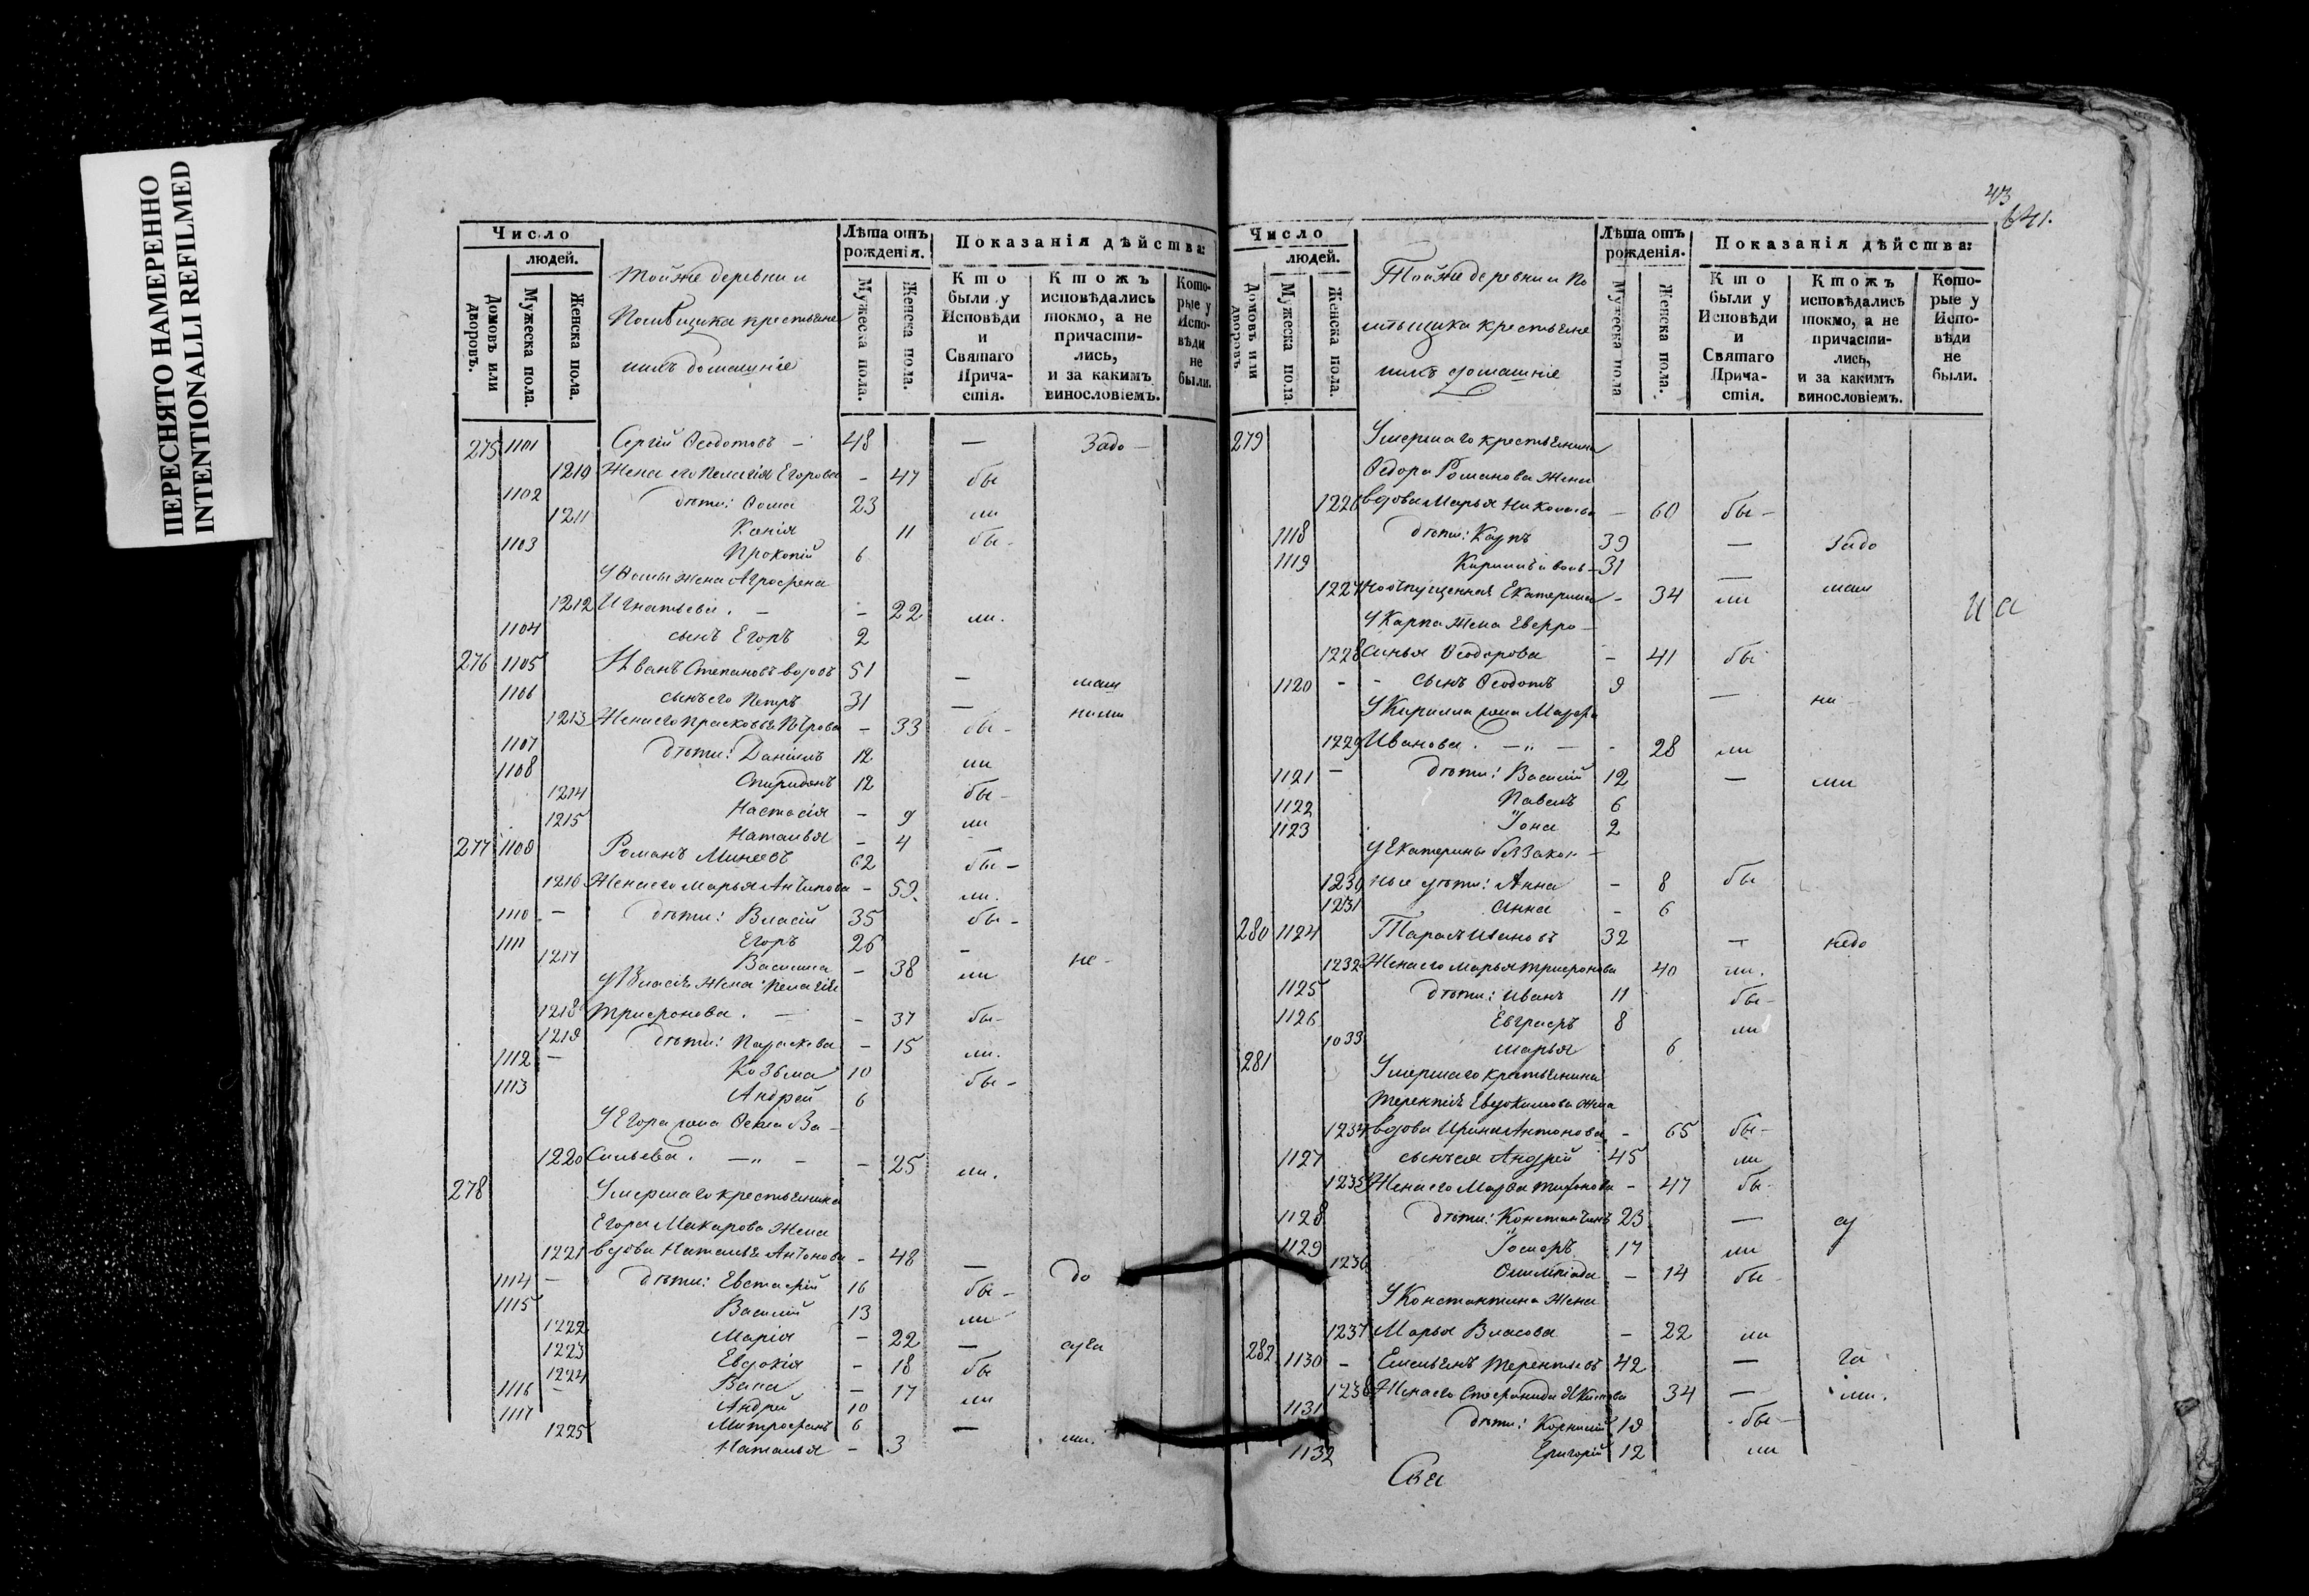 ПЕРЕСНЯТО НАМЕРЕННО
INTENTIONALLI REFILMED
Число
людей.
Домовъ или дворовъ.
Мужеска пола.
Женска пола.
Тойже деревни и
Помѣщика крестьяне
ихъ домашніе
Лѣта отъ рожденія.
Мужеска пола.
Женска пола.
Показанія дѣйства:
Кто были у Исповѣди и Святаго Прича-стія.
Ктожъ исповѣдались токмо, а не причасти-лись, и за какимъ винословіемъ.
Кото-рые у Испо-вѣди не были.
275 1101 Сергій Ѳеодотовъ - 48 — Задо-
1210 Жена его Пелагія Егорова - 47 бы
1102 дѣти: Ѳома 23 ли
1211 Ксенія 11 бы-
1103 Прокопій 6
У Ѳомы жена Агрофена
1212 Игнатьева. - - 22 ли.
1104 сынъ Егоръ 2
276 1105 Иванъ Степановъ вдовъ 51 — маш
1106 сынъ его Петръ 31 — ними
1213 Жена его Прасковья Петрова - 33 бы-
1107 дѣти: Даніилъ 12 ли
1108 Спиридонъ 12 бы-
1214 Настасія - 9 ли
1215 Наталья - 4 -
277 1109 Романъ Минеевъ 62 бы-
1216 Жена его Марья Антипова - 59 ли.
1110 - дѣти: Власій 35 бы-
1111 Егоръ 26 — не-
1217 Василиса - 38 ли
У Власія жена Пелагія
1218 Трифонова. - - 37 бы-
1219 дѣти: Параскева - 15 ли.
1112 - Козьма 10 бы-
1113 Андрей 6
У Егора жена Ѳекла Ва-
1220 сильева. -„- - 25 ли.
278 Умершаго крестьянина
Егора Макарова жена
1221 вдова Наталья Антонова - 48 — до
1114 - дѣти: Евстафій 16 бы-
1115 Василій 13 ли
1222 Марія - 22 — суга
1223 Евдокія - 18 бы
1224 - 17 ли
1116 - Андрей 10
1117 Митрофанъ 6 —
1225 Наталья - 3 ли.
43
641.
Число
людей.
Домовъ или дворовъ.
Мужеска пола.
Женска пола.
Тойже деревни и По
мѣщика крестьяне
ихъ домашніе
Лѣта отъ рожденія.
Мужеска пола
Женска пола.
Показанія дѣйства:
Кто были у Исповѣди и Святаго Прича-стія.
Ктожъ исповѣдались токмо, а не причасти-лись, и за какимъ винословіемъ.
Кото-рые у Испо-вѣди не были.
279 Умершаго крестьянина
Ѳедора Романова жена
1226 вдова Марья Николаева - 60 бы-
1118 дѣти: Карпъ 39 — Задо
1119 Кириллъ и воль- 31 —
1227 ноотпущенная Екатерина - 34 ли маш
У Карпа жена Евфро-
1228 синья Ѳеодорова - 41 бы
1120 - - сынъ Ѳеодотъ 9 — ни-
У Кирилла жена Марфа
1229 Иванова. -„- - 28 ли
1121 - дѣти: Василій 12 — ми
1122 Павелъ 6
1123 Іона 2
У Екатерины беззакон-
1230 ные дѣти: Анна - 8 бы
1231 Анна - 6
280 1124 Тарасъ Ивановъ 32 — недо
1232 Жена его Марья Трифонова 40 ли.
1125 дѣти: Иванъ 11 бы-
1126 Евграфъ 8 ли
1033 Марья 6
281 Умершаго крестьянина
Терентія Евдокимова жена
1234 вдова Ирина Антонова - 65 бы-
1127 сынъ ея Андрей 45 ли
1235 Жена его Марѳа - 47 бы-
1128 дѣти: Константинъ 23 — су
1129 Іосифъ 17 ли
1236 Олимпіада - 14 бы-
У Константина жена
1237 Марья Власова - 22 ли
282 1130 - Емельянъ Терентьевъ 42 — га
1238 Жена его Стефанида 34 — ми.
1131 дѣти: Корнилій 19 бы-
1132 Григорій 12 ли